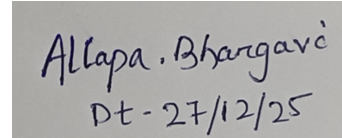 Allapa. Bhargavi
Dt - 27/12/25